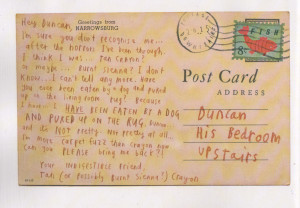 Greetings from
HARROWSBURG
Hey Duncan,
I'm sure you don't recognise me...
after the HORRORS I've been through,
I think I was... Tan Crayon?
Or maybe... Burnt Sienna? I don't
know... I can't tell any more. Have
you ever been eaten by a dog and puked
up on the living room rug? Because
I have... I HAVE BEEN EATEN BY A DOG
AND PUKED UP ON THE RUG, Duncan
and it's NOT pretty. Not pretty at all...
I'm more carpet fuzz than crayon now.
Can you PLEASE bring me back?!
Your Indigestible friend,
Tan (or possibly Burnt Sienna?) Crayon
FISH
8c
Post Card
ADDRESS
Duncan
His Bedroom
Upstairs